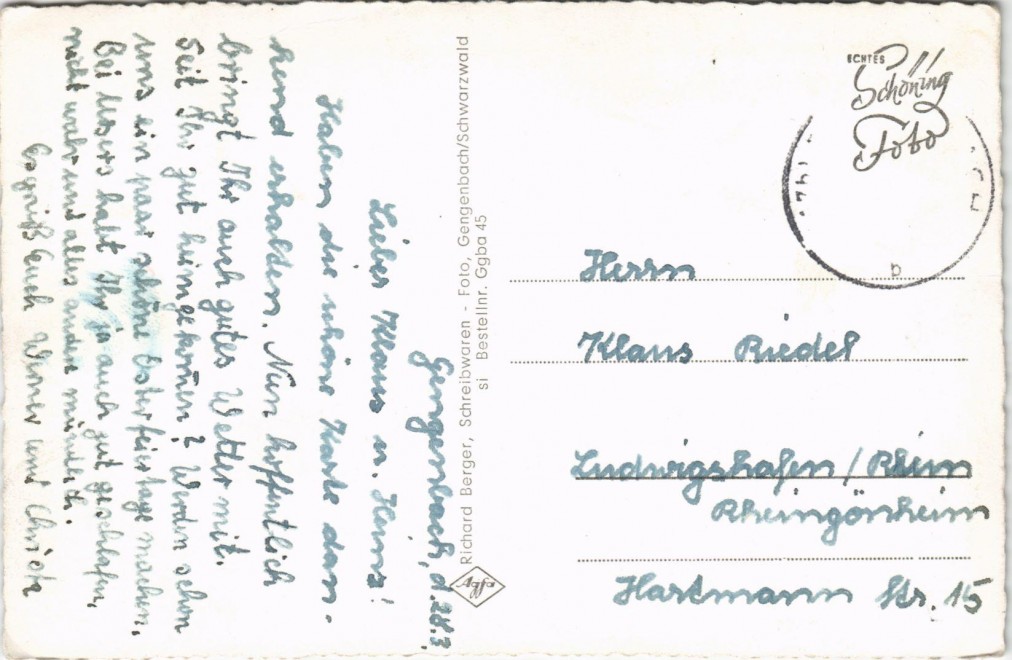 Gengenbach, d. 28.3.
Lieber Klaus u. Heinz!
Haben die schöne Karte dan-
kend erhalten. Nun hoffentlich
bringt Ihr auch gutes Wetter mit.
Seit Ihr gut heimgekomen? Werden schon
uns ein paar schöne Osterfeiertage machen.
Bei habt Ihr ja auch gut geschlafen,
nicht wahr und alles andere mündlich.
Es grüßt Euch und Christa
Richard Berger, Schreibwaren - Foto, Gengenbach/Schwarzwald
si Bestellnr. Ggba 45
Agfa
ECHTES
Schöning
Foto
b
Herrn
Klaus Riedel
Ludwigshafen / Rhein
Rheingönheim
Hartmann Str. 15